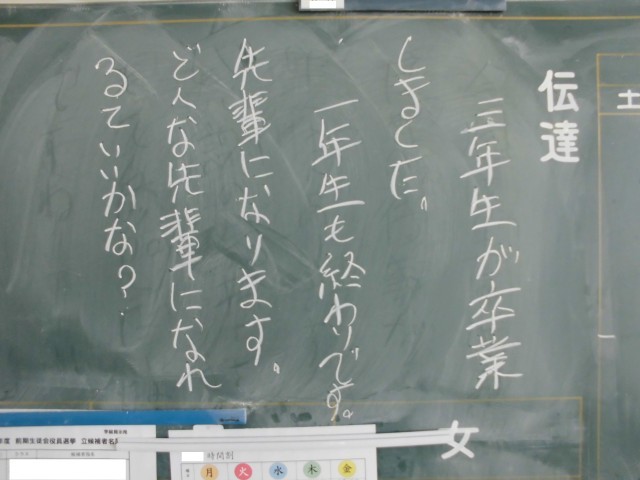 伝達
三年生が卒業
しました。
一年生も終わりです。
先輩になります。
どんな先輩になれ
るていいかな？
土
女
前期生徒会役員選挙 立候補者名
時間割
月 火 水 木 金